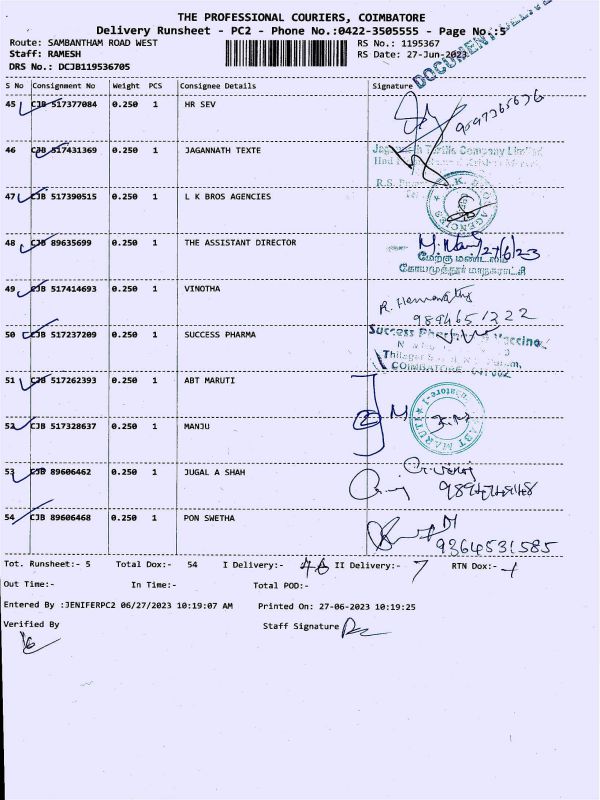 THE PROFESSIONAL COURIERS, COIMBATORE
Delivery Runsheet - PC2 - Phone No.:0422-3505555 - Page No.:5
Route: SAMBANTHAM ROAD WEST
Staff: RAMESH
DRS No.: DCJB119536705
RS No.: 1195367
RS Date: 27-Jun-2023
S No Consignment No Weight PCS Consignee Details Signature
45 CJB 517377084 0.250 1 HR SEV
9597365636
46 CJB 517431369 0.250 1 JAGANNATH TEXTE
47 CJB 517390515 0.250 1 L K BROS AGENCIES
48 CJB 89635699 0.250 1 THE ASSISTANT DIRECTOR
27/6/23
மேற்கு மண்டலம்
கோயமுத்தூர் மாநகராட்சி
49 CJB 517414693 0.250 1 VINOTHA
9894651222
50 CJB 517237209 0.250 1 SUCCESS PHARMA
Success
COIMBATORE
51 CJB 517262393 0.250 1 ABT MARUTI
ABT MARUTI
52 CJB 517328637 0.250 1 MANJU
53 CJB 89606462 0.250 1 JUGAL A SHAH
54 CJB 89606468 0.250 1 PON SWETHA
9364531585
Tot. Runsheet:- 5 Total Dox:- 54 I Delivery:- 46 II Delivery:- 7 RTN Dox:- 1
Out Time:- In Time:- Total POD:-
Entered By :JENIFERPC2 06/27/2023 10:19:07 AM Printed On: 27-06-2023 10:19:25
Verified By Staff Signature